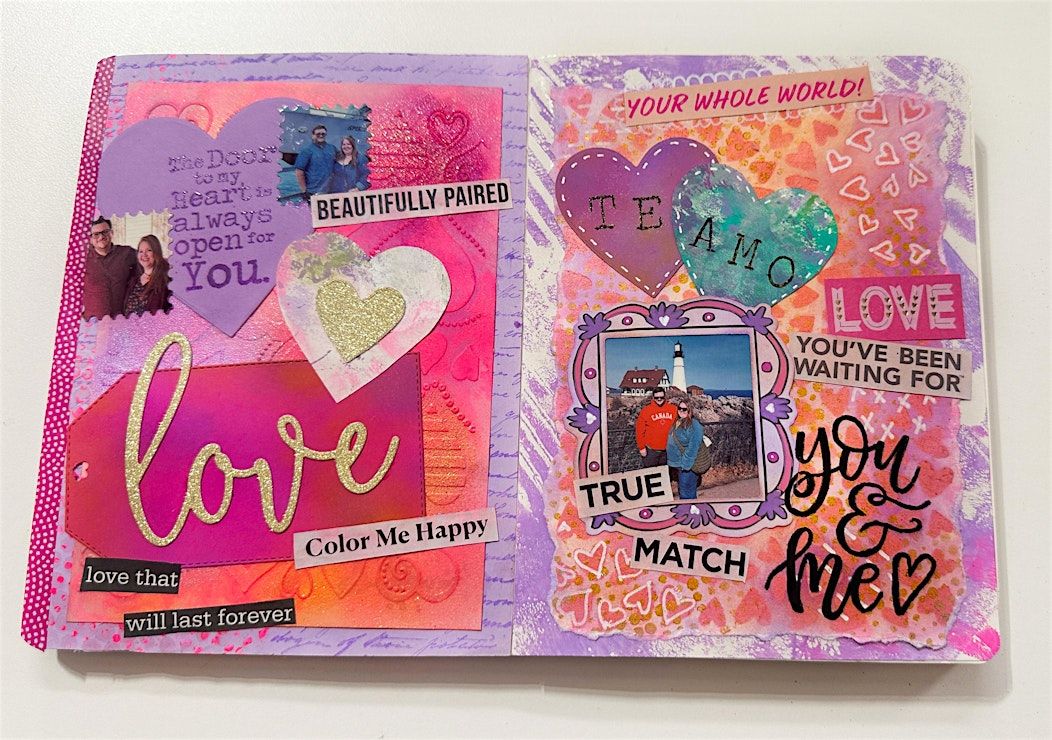 The Door
to my
Heart is
always
open for
You.
BEAUTIFULLY PAIRED
love
Color Me Happy
love that
will last forever
YOUR WHOLE WORLD!
TE AMO
LOVE
YOU'VE BEEN
WAITING FOR
CANADA
TRUE
MATCH
you
&
me